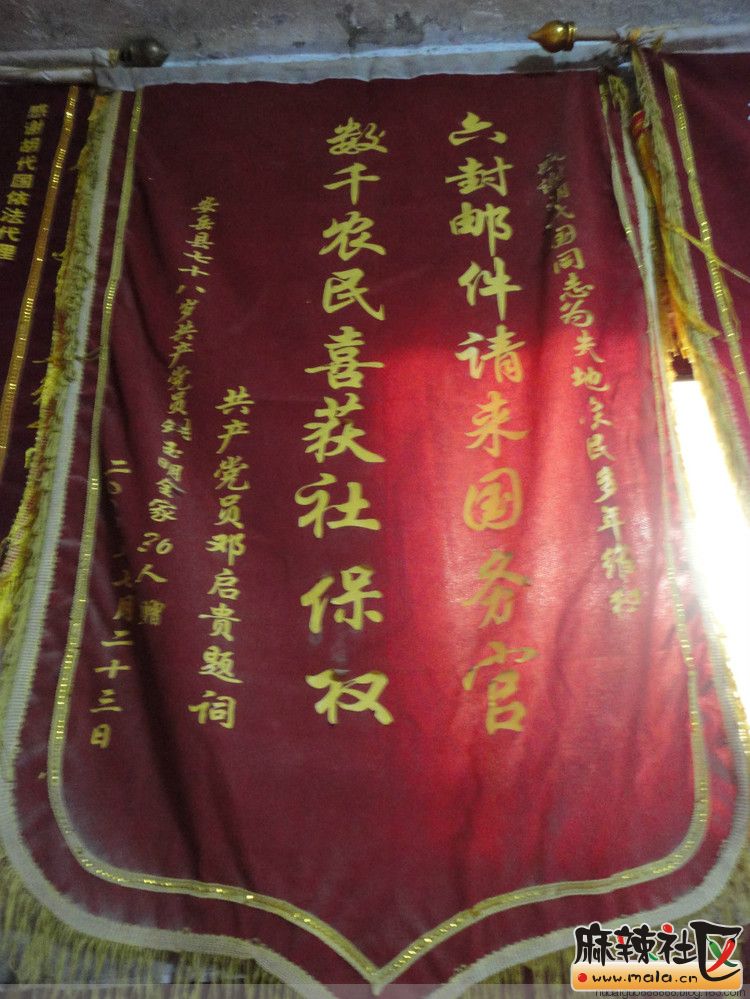 同志为失地农民多年维权
六封邮件请来国务官
数千农民喜获社保权
共产党员邓启贵题词
安岳县七十八岁共产党员刘玉明全家36人赠
七月二十三日
感谢胡代国依法代理
麻辣社区
www.mala.cn